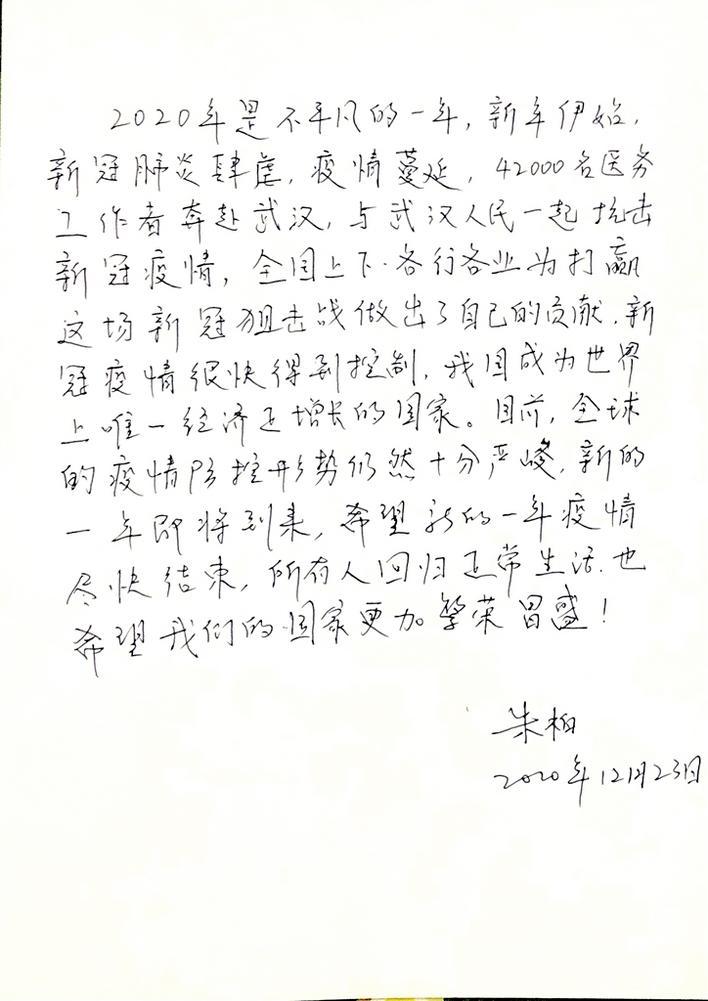 2020年是不平凡的一年，新年伊始，
新冠肺炎肆虐，疫情蔓延，42000名医务
工作者奔赴武汉，与武汉人民一起抗击
新冠疫情，全国上下.各行各业为打赢
这场新冠狙击战做出了自己的贡献.新
冠疫情很快得到控制，我国成为世界
上唯一经济正增长的国家。目前，全球
的疫情防控形势仍然十分严峻，新的
一年即将到来，希望新的一年疫情
尽快结束，所有人回归正常生活.也
希望我们的国家更加繁荣昌盛！
朱柏
2020年12月23日